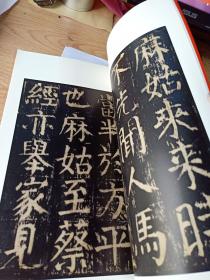 麻姑來來時
不先聞人馬
當半於方平
也麻姑至蔡
經亦舉家見